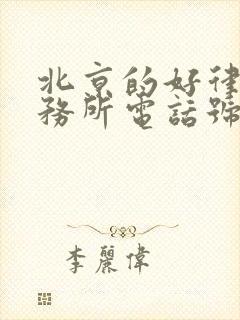 北京的好律
務所電話號
李麗偉